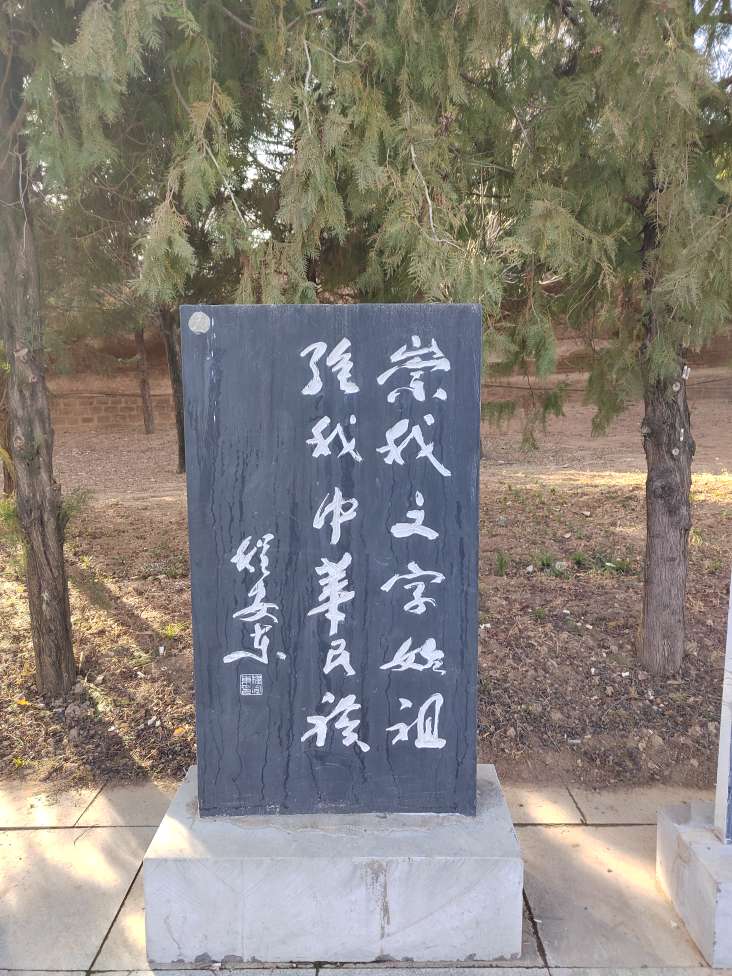 崇我文字始祖
强我中华民族
程安东